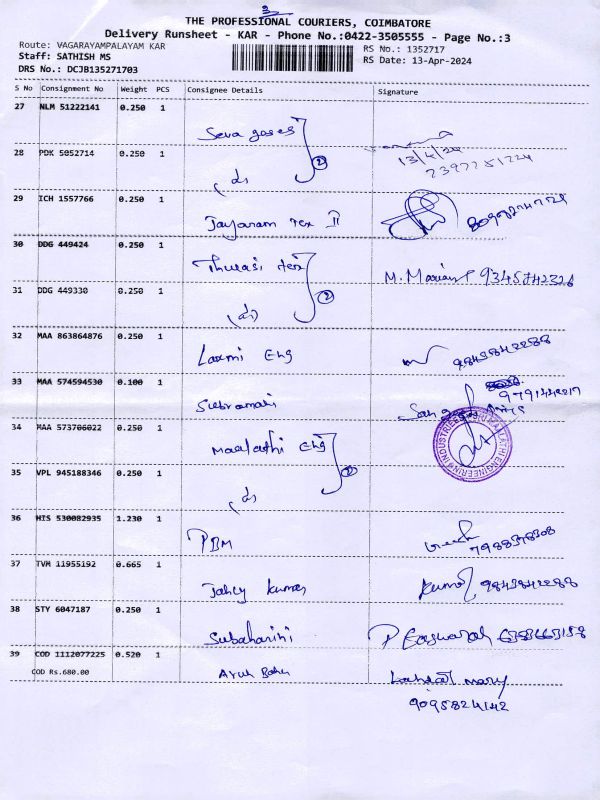 3
THE PROFESSIONAL COURIERS, COIMBATORE
Delivery Runsheet - KAR - Phone No.:0422-3505555 - Page No.:3
Route: VAGARAYAMPALAYAM KAR
RS No.: 1352717
Staff: SATHISH MS
RS Date: 13-Apr-2024
DRS No.: DCJB135271703
S No Consignment No Weight PCS Consignee Details Signature
27 NLM 51222141 0.250 1
Seva gases
2
28 PDK 5052714 0.250 1
13/4/24
29 ICH 1557766 0.250 1
Jayaram Tex II
30 DDG 449424 0.250 1
Thurasi tex
M. Marian 9345742326
2
31 DDG 449330 0.250 1
32 MAA 863864876 0.250 1
Laxmi Eng
9843842288
33 MAA 574594530 0.100 1
Subramani
34 MAA 573706022 0.250 1
Maalathi Eng
2
35 VPL 945188346 0.250 1
36 HIS 530082935 1.230 1
PBM
37 TVM 11955192 0.665 1
kumar
9843842288
38 STY 6047187 0.250 1
Subaharini
P
39 COD 1112077225 0.520 1
COD Rs.680.00
Arun Babu
mary
9095824142